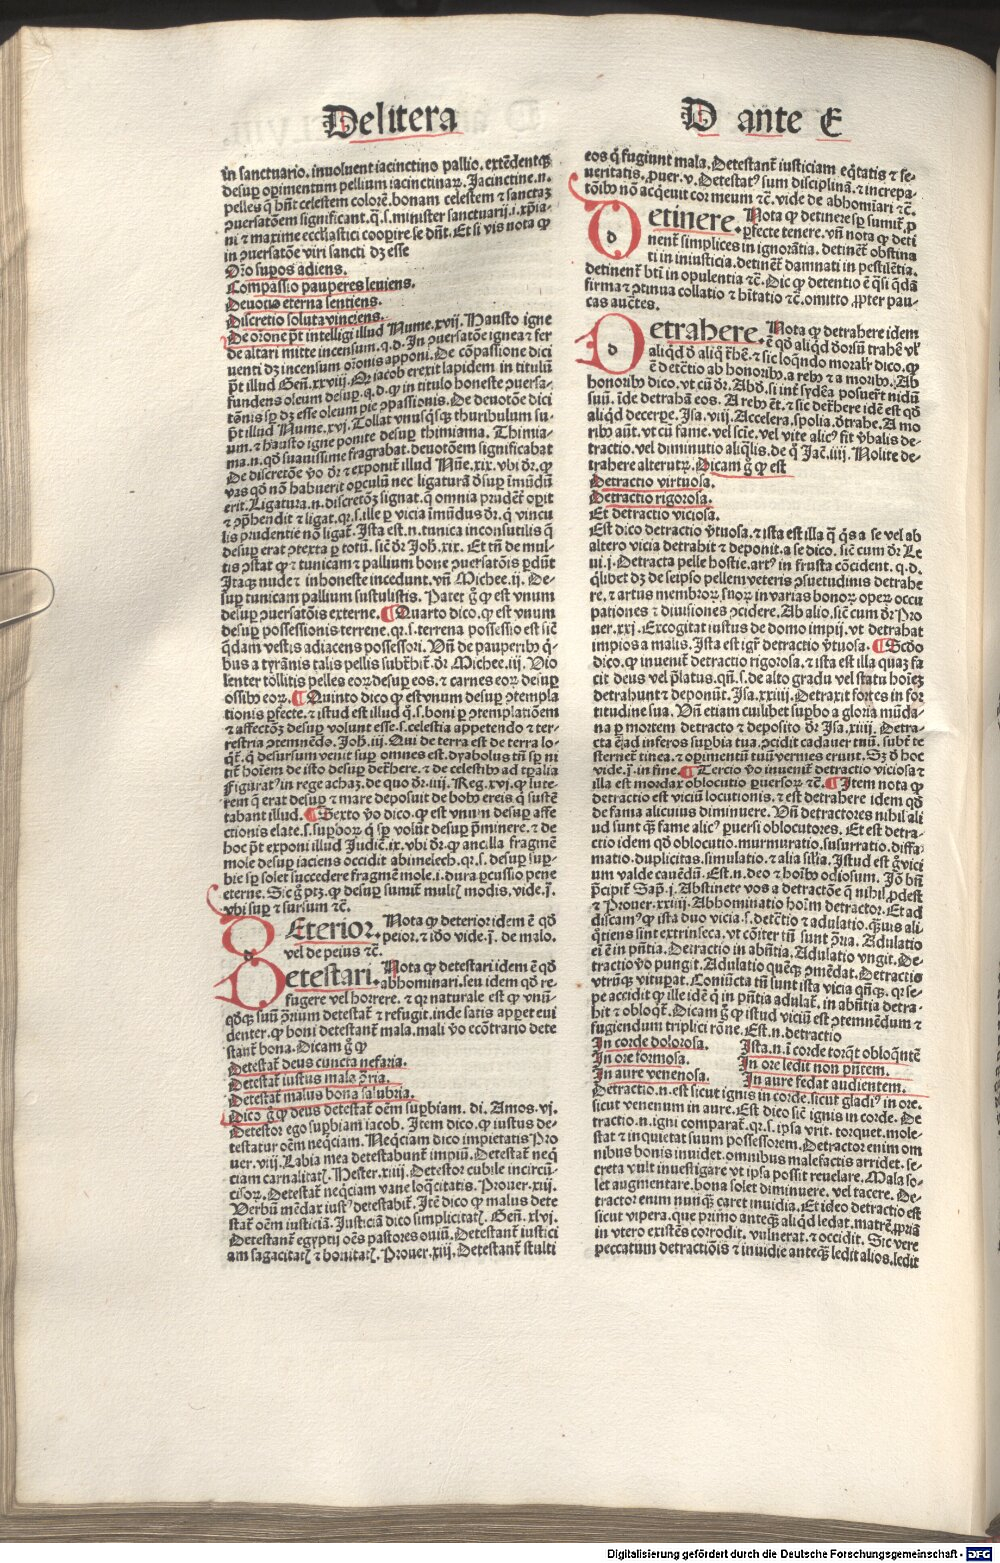 De litera
D ante E
in sanctuario. inuoluent iacinctino pallio. extẽdentqꝫ
desuꝑ oꝑimentum pellium iacinctinaꝝ. Iacinctine.n.
pelles q̃ hñt celestem colorẽ. bonam celestem ⁊ sanctaꝫ
ꝯuersatõem significant. q̃.s. minister sanctuarij.i.xp̃ia-
ni ⁊ maxime ecclesiastici cooꝑire se dñt. Et si vis nota ꝙ
in ꝯuersatõe viri sancti dꝫ esse
Oŕo suꝑos adiens.
Compassio pauperes leuiens.
Deuotio eterna lentiens.
Discretio soluta vinciens.
De orone p̃t intelligi illud Nume.xvij. Hausto igne
de altari mitte incensum.q.d. In ꝯuersatõe ignea ⁊ fer
uenti dꝫ incensum orõnis apponi. De cõpassione dici
p̃t illud Geñ.xxviij. Qꝛ iacob erexit lapidem in titulũ
fundens oleum desuꝑ.q.d.ꝙ in titulo honeste ꝯuersa-
tõnis sꝑ dꝫ esse oleum pie ꝯpassionis. De deuotõe dici
p̃t illud Nume.xvj. Tollat vnusq̃sqꝫ thuribulum su-
um.⁊ hausto igne ponite desuꝑ thimiama. Thimia-
ma.n. qđ suauissime fragrabat. deuotõem significabat
De discretõe ꝟo dr̃ ⁊ exponit̃ illud Nũe.xix. vbi dr̃.ꝙ
vas qđ nõ habuerit oꝑculũ nec ligaturã desuꝑ ĩmũdũ
erit. Ligatura.n. discretõꝫ signat. q̃ omnia prudent̃ oꝑit
⁊ ꝯp̃hendit ⁊ ligat.qꝛ.s. ille ꝑ vicia ĩmũdus dr̃.q̃ vincu
lis prudentie nõ ligat̃. Ista est.n. tunica inconsutilis q̃
desuꝑ erat ꝯtexta ꝑ totũ. sic̃ dr̃ Joh̃.xix. Et tñ de mul-
tis ꝯstat ꝙ ⁊ tunicam ⁊ pallium bone ꝯuersatõis ꝑdũt
Itaqꝫ nude ⁊ inhoneste incedunt. vñ Michee.ij. De-
suꝑ tunicam pallium sustulistis. Patet g̃ ꝙ est vnum
desuꝑ ꝯuersatõis externe. ¶ Quarto dico.ꝙ est vnum
desuꝑ possessionis terrene.qꝛ.s. terrena possessio est sic̃
q̃dam vestis adiacens possessori. Vñ de pauperibꝰ q̃-
bus a tyrãnis talis pellis subt̃hit̃. dr̃ Michee.iij. Vio
lenter tollitis pelles eoꝝ desuꝑ eos.⁊ carnes eoꝝ desuꝑ
ossibꝰ eoꝝ. ¶ Quinto dico ꝙ est vnum desuꝑ ꝯtempla
tionis ꝑfecte.⁊ istud est illud q̃.s. boni ꝑ ꝯtemplatiõem
⁊ affectõꝫ desuꝑ volunt esse.s. celestia appetendo ⁊ ter-
restria ꝯtemnẽdo. Joh̃.iij. Qui de terra est de terra lo-
q̃t̃. q̃ desursum venit suꝑ omnes est. Dyabolus tñ sꝑ ni
tit̃ hoĩem de isto desuꝑ det̃here.⁊ de celestibꝰ ad tꝑalia
Figurat̃ in rege achaꝫ. de quo dr̃.iiij. Reg.xvj.ꝙ lute-
rem q̃ erat desuꝑ ⁊ mare deposuit de bobꝰ ereis q̃ sustẽ
tabant illud. ¶ Sexto ꝟo dico.ꝙ est vnũ desuꝑ affe
ctionis elate.s. suꝑboꝝ q̃ sꝑ volũt desuꝑ p̃minere.⁊ de
hoc p̃t exponi illud Judic̃.ix. vbi dr̃.ꝙ ancilla fragmẽ
mole desuꝑ iaciens occidit abimelech.qꝛ.s. desuꝑ suꝑ-
bie sꝑ solet succedere fragmẽ mole.i. dura ꝑcussio pene
eterne. Sic g̃ ptꝫ.ꝙ desuꝑ sumit̃ multꝭ modis. vide.j̃.
vbi suꝑ ⁊ sursum ⁊c̃.
Eterior. Nota ꝙ deterior idem ẽ qđ
peior.⁊ ido vide.j̃. de malo.
vel de peius ⁊c̃.
Detestari. Nota ꝙ detestari idem ẽ qđ
abhominari. seu idem qđ re-
fugere vel horrere.⁊ qꝛ naturale est ꝙ vnũ-
qđqꝫ suũ ꝯrium detestat̃ ⁊ refugit. inde satis apꝑet eui
denter.ꝙ boni detestant̃ mala. mali ꝟo ecõtrario dete
stant̃ bona. Dicam g̃ ꝙ
Detestat̃ deus cuncta nefaria.
Detestat̃ iustus mala ꝯria.
Detestat̃ malus bona salubria.
Dico g̃ ꝙ deus detestat̃ oẽm suꝑbiam. di. Amos.vj.
Detestor ego suꝑbiam iacob. Item dico.ꝙ iustus de-
testatur oẽm neq̃ciam. Neq̃ciam dico impietatis Pro
uer.viij. Labia mea detestabunt̃ impiũ. Detestat̃ neq̃
ciam carnalitatꝭ. Hester.xiiij. Detestor cubile incircũ-
cisoꝝ. Detestat̃ neq̃ciam vane loq̃citatis. Prouer.xiij.
Verbũ mẽdax iustꝰ detestabit̃. Itẽ dico ꝙ malus dete
stat̃ oẽm iusticiã. Justiciã dico simplicitatꝭ. Geñ.xlvj.
Detestant̃ egyptij oẽs pastores ouiũ. Detestant̃ iustici
am sagacitatꝭ ⁊ bonitatꝭ. Prouer.xiij. Detestant̃ stulti
eos q̃ fugiunt mala. Detestant̃ iusticiam eq̃tatis ⁊ se-
ueritatis. ꝓuer.v. Detestatꝰ sum disciplinã.⁊ increpa-
tõibꝰ nõ acq̃euit cor meum ⁊c̃. vide de abhomiari ⁊c̃.
Detinere. Nota ꝙ detinere sꝑ sumit̃ ꝓ
ꝑfecte tenere. vñ nota ꝙ deti
nent̃ simplices in ignorãtia. detinẽt̃ obstina
ti in iniusticia. detinẽt̃ damnati in pestilẽtia.
detinent̃ bt̃i in opulentia ⁊c̃. Dic ꝙ detentio ẽ q̃si q̃dã
firma ⁊ ꝯtinua collatio ⁊ hĩtatio ⁊c̃. omitto ꝓpter pau-
cas auctẽs.
Detrahere. Nota ꝙ detrahere idem
ẽ qđ aliqđ dorsũ trahẽ vl̕
aliqđ ꝺ aliq̃ t̃hẽ.⁊ sic loq̃ndo moralr̃ dico.ꝙ
ẽ det̃ctio ab honoribꝰ. a rebꝰ ⁊ a moribꝰ. Ab
honoribꝰ dico. vt cũ dr̃. Abd̃. si int̃ sydẽa posuer̃t nidũ
suũ. ĩde detrahã eos. A rebꝰ ẽt.⁊ sic det̃here idẽ est qđ
aliqđ decerꝑe. Isa.viij. Accelera. spolia. detrahe. A mo
ribꝰ aũt. vt cũ fame. vel sciẽ. vel vite alicꝰ fit ṽbalis de-
tractio. vel diminutio aliq̃lis. de q̃ Jac̃.iiij. Nolite de-
trahere alterutrꝝ. Dicam g̃ ꝙ est
Detractio virtuosa.
Detractio rigorosa.
Et detractio viciosa.
Est dico detractio ṽtuosa.⁊ ista est illa q̃ q̃s a se vel ab
altero vicia detrahit ⁊ deponit. a se dico. sic̃ cum dr̃ Le
ui.j. Detracta pelle hostie. artꝰ in frusta cõcident.q.d.
q̃libet dꝫ de seipso pellem veteris ꝯsuetudinis detrahe
re.⁊ artus membroꝝ suoꝝ in varias bonoꝝ oꝑeꝝ occu
pationes ⁊ diuisiones ꝯcidere. Ab alio. sic̃ cum dr̃ Pro
uer.xxj. Excogitat iustus de domo impij. vt detrabat
impios a malis. Ista est igr̃ detractio ṽtuosa. ¶ Scđo
dico.ꝙ inuenit̃ detractio rigorosa.⁊ ista est illa quaꝫ fa
cit deus vel p̃latus. qñ.s. de alto gradu vel statu hoĩeꝫ
detrahunt ⁊ deponũt. Isa.xxiij. Detraxit fortes in for
titudine sua. Vñ etiam cuilibet suꝑbo a gloria mũda-
na ꝑ mortem detracto ⁊ deposito dr̃ Isa.xiiij. Detra-
cta ẽ ad inferos suꝑbia tua. ꝯcidit cadauer tuũ. subt̃ te
sternet̃ tinea.⁊ oꝑimentũ tuũ vermes erunt. Sꝫ ꝺ hoc
vide.j̃. in fine. ¶ Tercio ꝟo inuenit̃ detractio viciosa ⁊
illa est mordax oblocutio ꝑuersoꝝ ⁊c̃. ¶ Item nota ꝙ
detractio est viciũ locutionis.⁊ est detrahere idem qđ
de fama alicuius diminuere. Vñ detractores nihil ali
ud sunt q̃ꝫ fame alicꝰ ꝑuersi oblocutores. Et est detra-
ctio idem qđ oblocutio. murmuratio. susurratio. diffa-
matio. duplicitas. simulatio.⁊ alia silĩa. Istud est g̃ vici
um valde cauẽdũ. Est.n. deo ⁊ hoĩbꝰ odiosum. Jõ bñ
p̃cipit̃ Sap̃.j. Abstinete vos a detractõe q̃ nihil ꝓdest
⁊ Prouer.xxiiij. Abhominatio hoĩm detractor. Et ad
discamꝰ ꝙ ista duo vicia.s. detẽtio ⁊ adulatio. q̃uis ali
q̃tiens sint extrinseca. vt cõiter tñ sunt ꝯria. Adulatio
ei ẽ in p̃ñtia. Detractio in abñtia. Adulatio vngit. De-
tractio ꝟo pungit. Adulatio quẽqꝫ ꝯmẽdat. Detractio
vtrũqꝫ vituꝑat. Coniũcta tñ sunt ista vicia qñqꝫ. qꝛ se-
pe accidit ꝙ ille idẽ q̃ in p̃ñtia adulat̃. in abñtia detra-
hit ⁊ obloq̃t̃. Dicam g̃ ꝙ istud viciũ est ꝯtemnẽdum ⁊
fugiendum triplici rõne. Est.n. detractio
In corde dolorosa. Ista.n.ĩ corde torq̃t obloq̃ntẽ
In ore formosa. In ore ledit non p̃ñtem.
In aure venenosa. In aure fedat audientem.
Detractio.n. est sicut ignis in corde. sicut gladiꝰ in ore.
sicut venenum in aure. Est dico sic̃ ignis in corde. De
tractio.n. igni comparat̃.qꝛ.s. ipsa vrit. torquet. mole-
stat ⁊ inquietat suum possessorem. Detractor enim om
nibus bonis inuidet. omnibus malefactis arridet. se-
creta vult inuestigare vt ipsa possit reuelare. Mala so-
let augmentare. bona solet diminuere. vel tacere. De-
tractor enim nunq̃ꝫ caret inuidia. Et ideo detractio est
sicut vipera. que primo anteq̃ꝫ aliqđ ledat. matrẽ ꝓpriã
in vtero existẽs corrodit. vulnerat.⁊ occidit. Sic vere
peccatum detractiõis ⁊ inuidie anteq̃ꝫ ledit alios. ledit
Digitalisierung gefördert durch die Deutsche Forschungsgemeinschaft - DFG